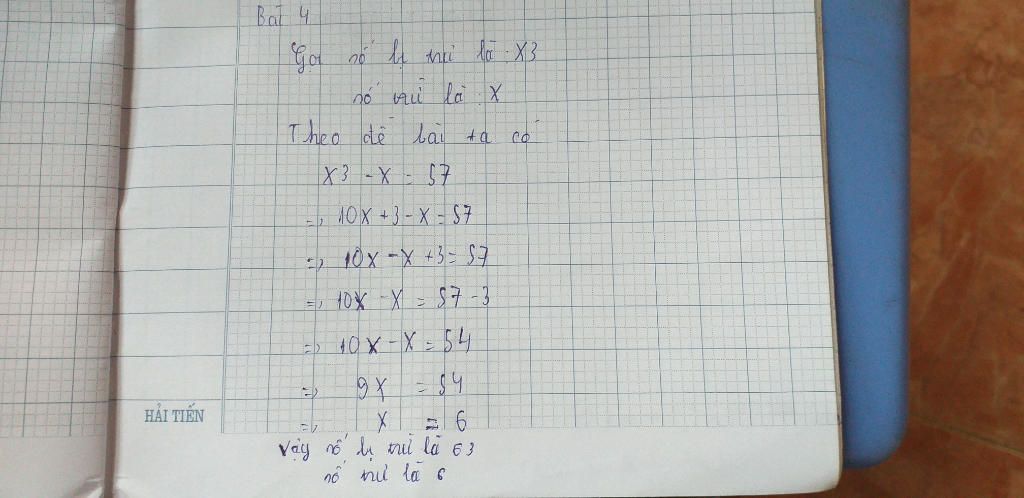 Bài 4
Gọi số bị trừ là: X3
số trừ là: X
Theo đề bài ta có
X3 - X = 57
=> 10X + 3 - X = 57
=> 10X - X + 3 = 57
=> 10X - X = 57 - 3
=> 10X - X = 54
=> 9X = 54
=> X = 6
HẢI TIẾN
Vậy số bị trừ là 63
số trừ là 6